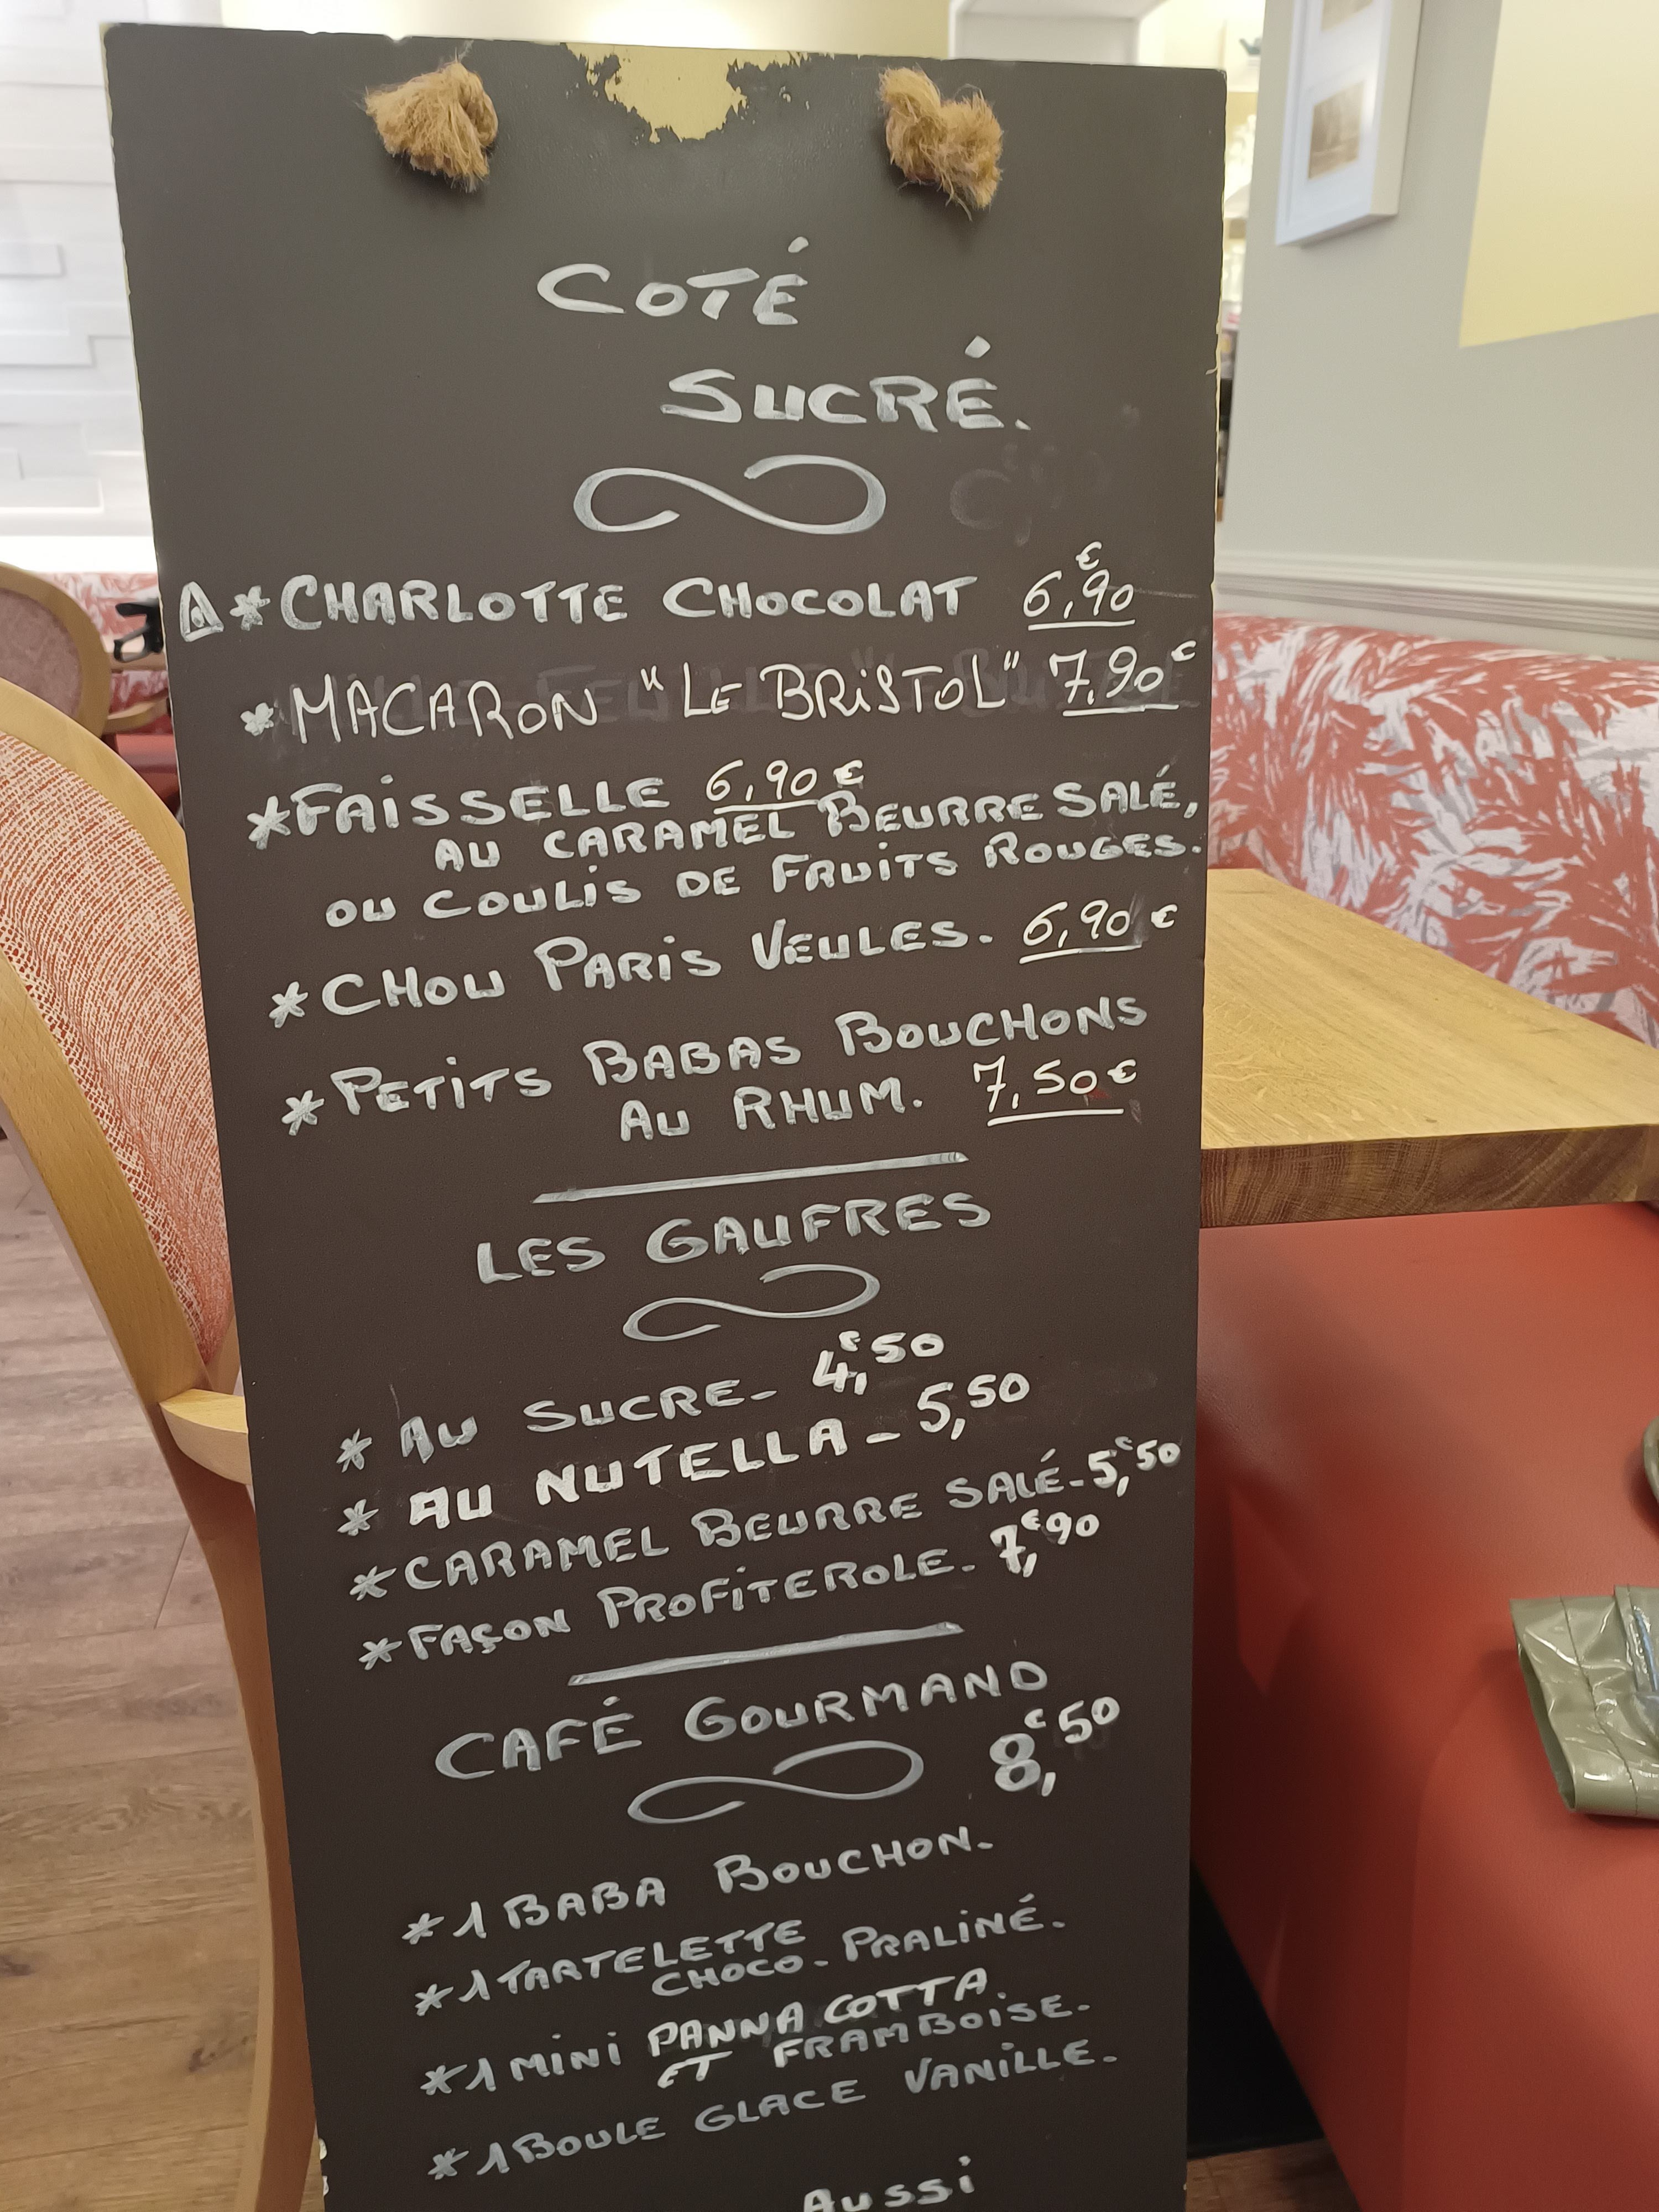 COTÉ
SUCRÉ.
* CHARLOTTE CHOCOLAT 6,90€
* MACARON "LE BRISTOL" 7,90€
* FAISSELLE 6,90€
AU CARAMEL BEURRE SALÉ,
OU COULIS DE FRUITS ROUGES.
* CHOU PARIS VEULES. 6,90€
* PETITS BABAS BOUCHONS
AU RHUM. 7,50€
LES GAUFRES
* AU SUCRE- 4,€50
* AU NUTELLA- 5,50
* CARAMEL BEURRE SALÉ- 5,€50
* FAÇON PROFITEROLE- 7,€90
CAFÉ GOURMAND
8,€50
* 1 BABA BOUCHON-
* 1 TARTELETTE
CHOCO- PRALINÉ.
* 1 MINI PANNA COTTA.
ET FRAMBOISE-
* 1 BOULE GLACE VANILLE-
AUSSI